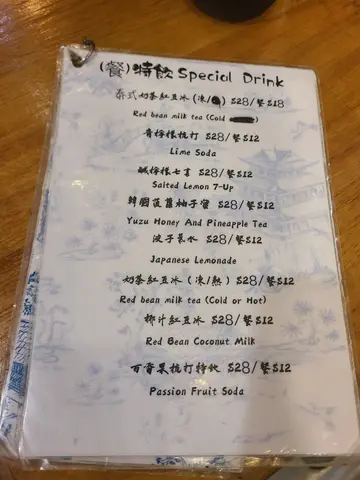 (餐)特飲 Special Drink
泰式奶茶紅豆冰(凍/) $28/餐$18
Red bean milk tea (Cold )
青檸檬梳打 $28/餐$12
Lime Soda
鹹檸檬七喜 $28/餐$12
Salted Lemon 7-Up
韓國菠蘿柚子蜜 $28/餐$12
Yuzu Honey And Pineapple Tea
波子汽水 $28/餐$12
Japanese Lemonade
奶茶紅豆冰(凍/熱) $28/餐$12
Red bean milk tea (Cold or Hot)
椰汁紅豆冰 $28/餐$12
Red Bean Coconut Milk
百香果梳打特飲 $28/餐$12
Passion Fruit Soda